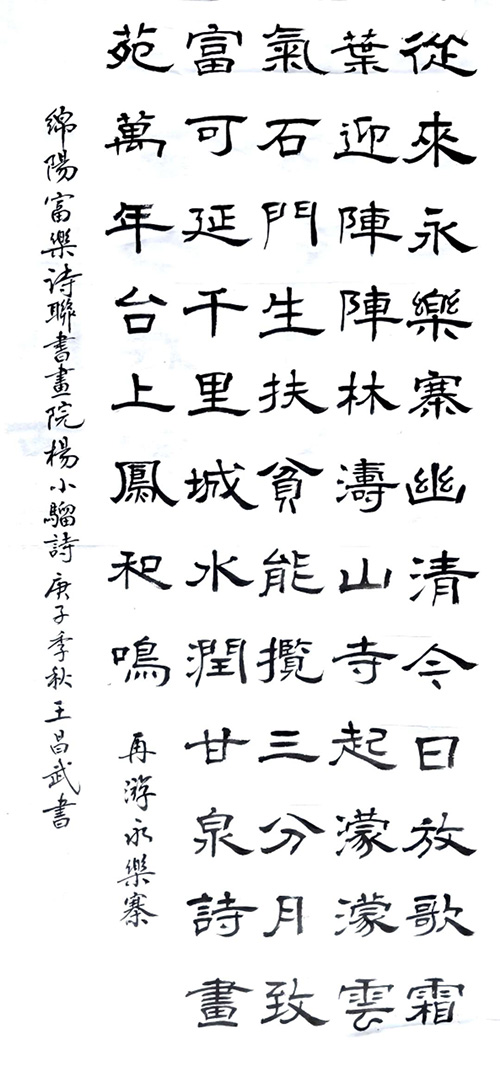 從來永樂寨幽清今日放歌霜
葉迎陣陣林濤山寺起濛濛雲
氣石門生扶貧能攬三分月致
富可延千里城水潤甘泉詩畫
苑萬年台上鳳和鳴
再游永樂寨
綿陽富樂詩聯書畫院楊小驑詩庚子季秋王昌武書